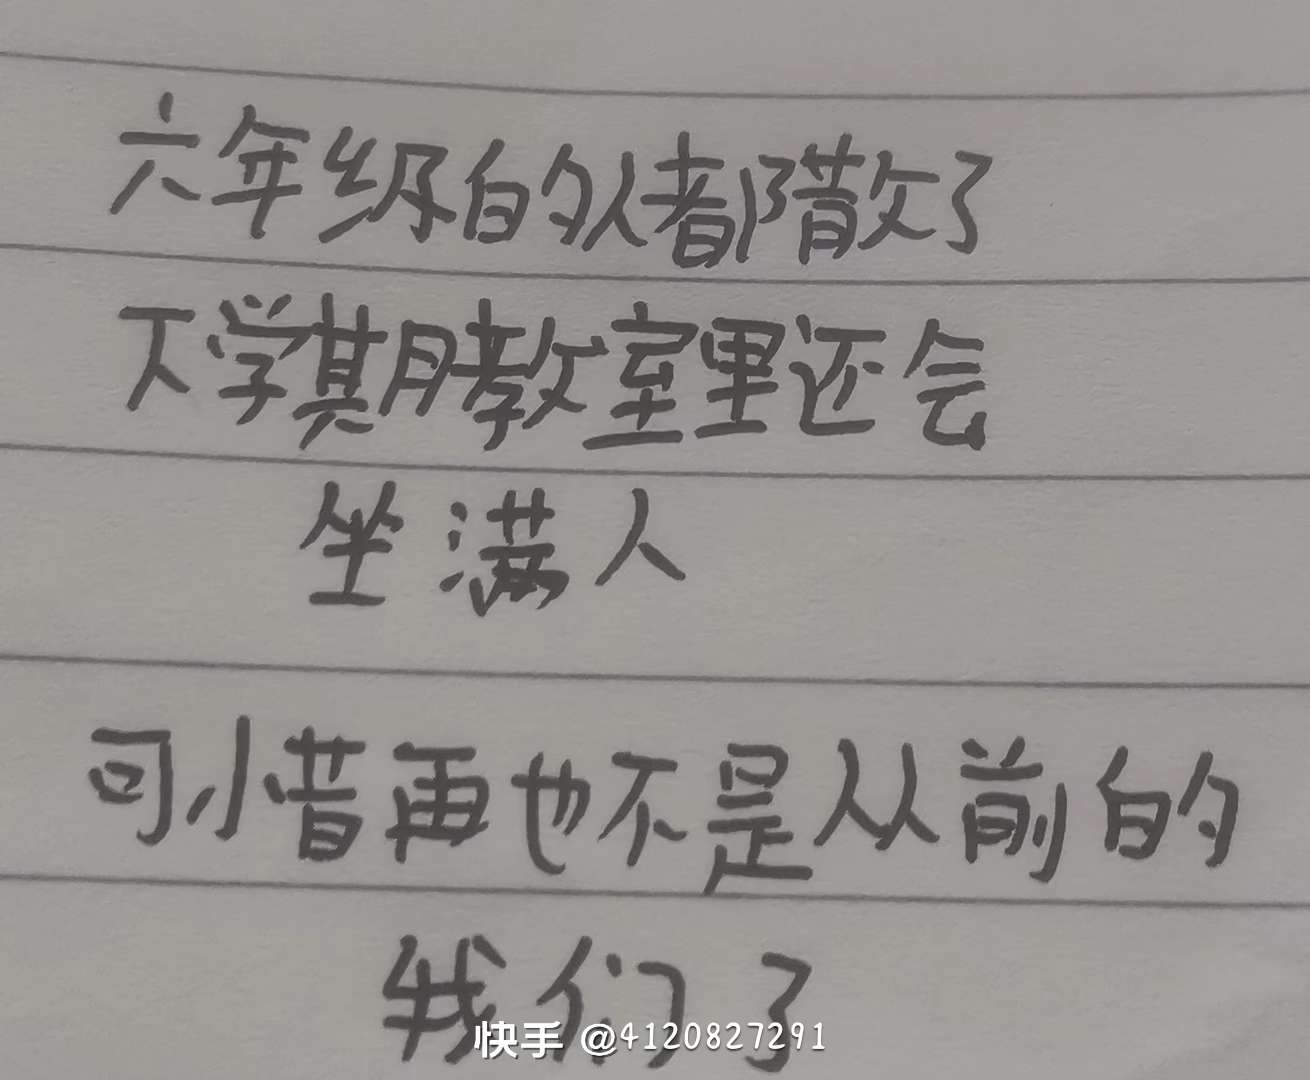 六年级的人都散了
下学期教室里还会
坐满人
可惜再也不是从前的
我们了
快手 @4120827291